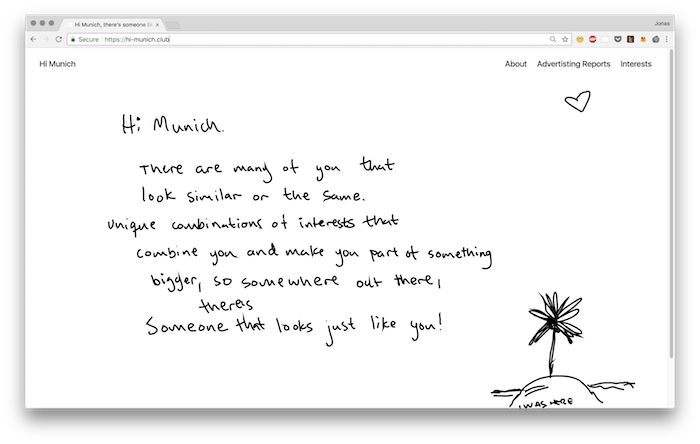 Hi Munich, there's someone lik
Jonas
Secure https://hi-munich.club
Hi Munich
About Advertisting Reports Interests
Hi Munich.
There are many of you that
look similar or the same.
unique combinations of interests that
combine you and make you part of something
bigger, so somewhere out there,
there's
Someone that looks just like you!
I WAS HERE